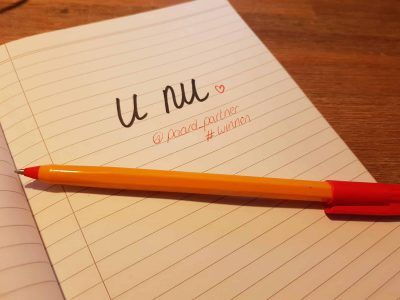 u nu ♡
@paard_partner
#winnen